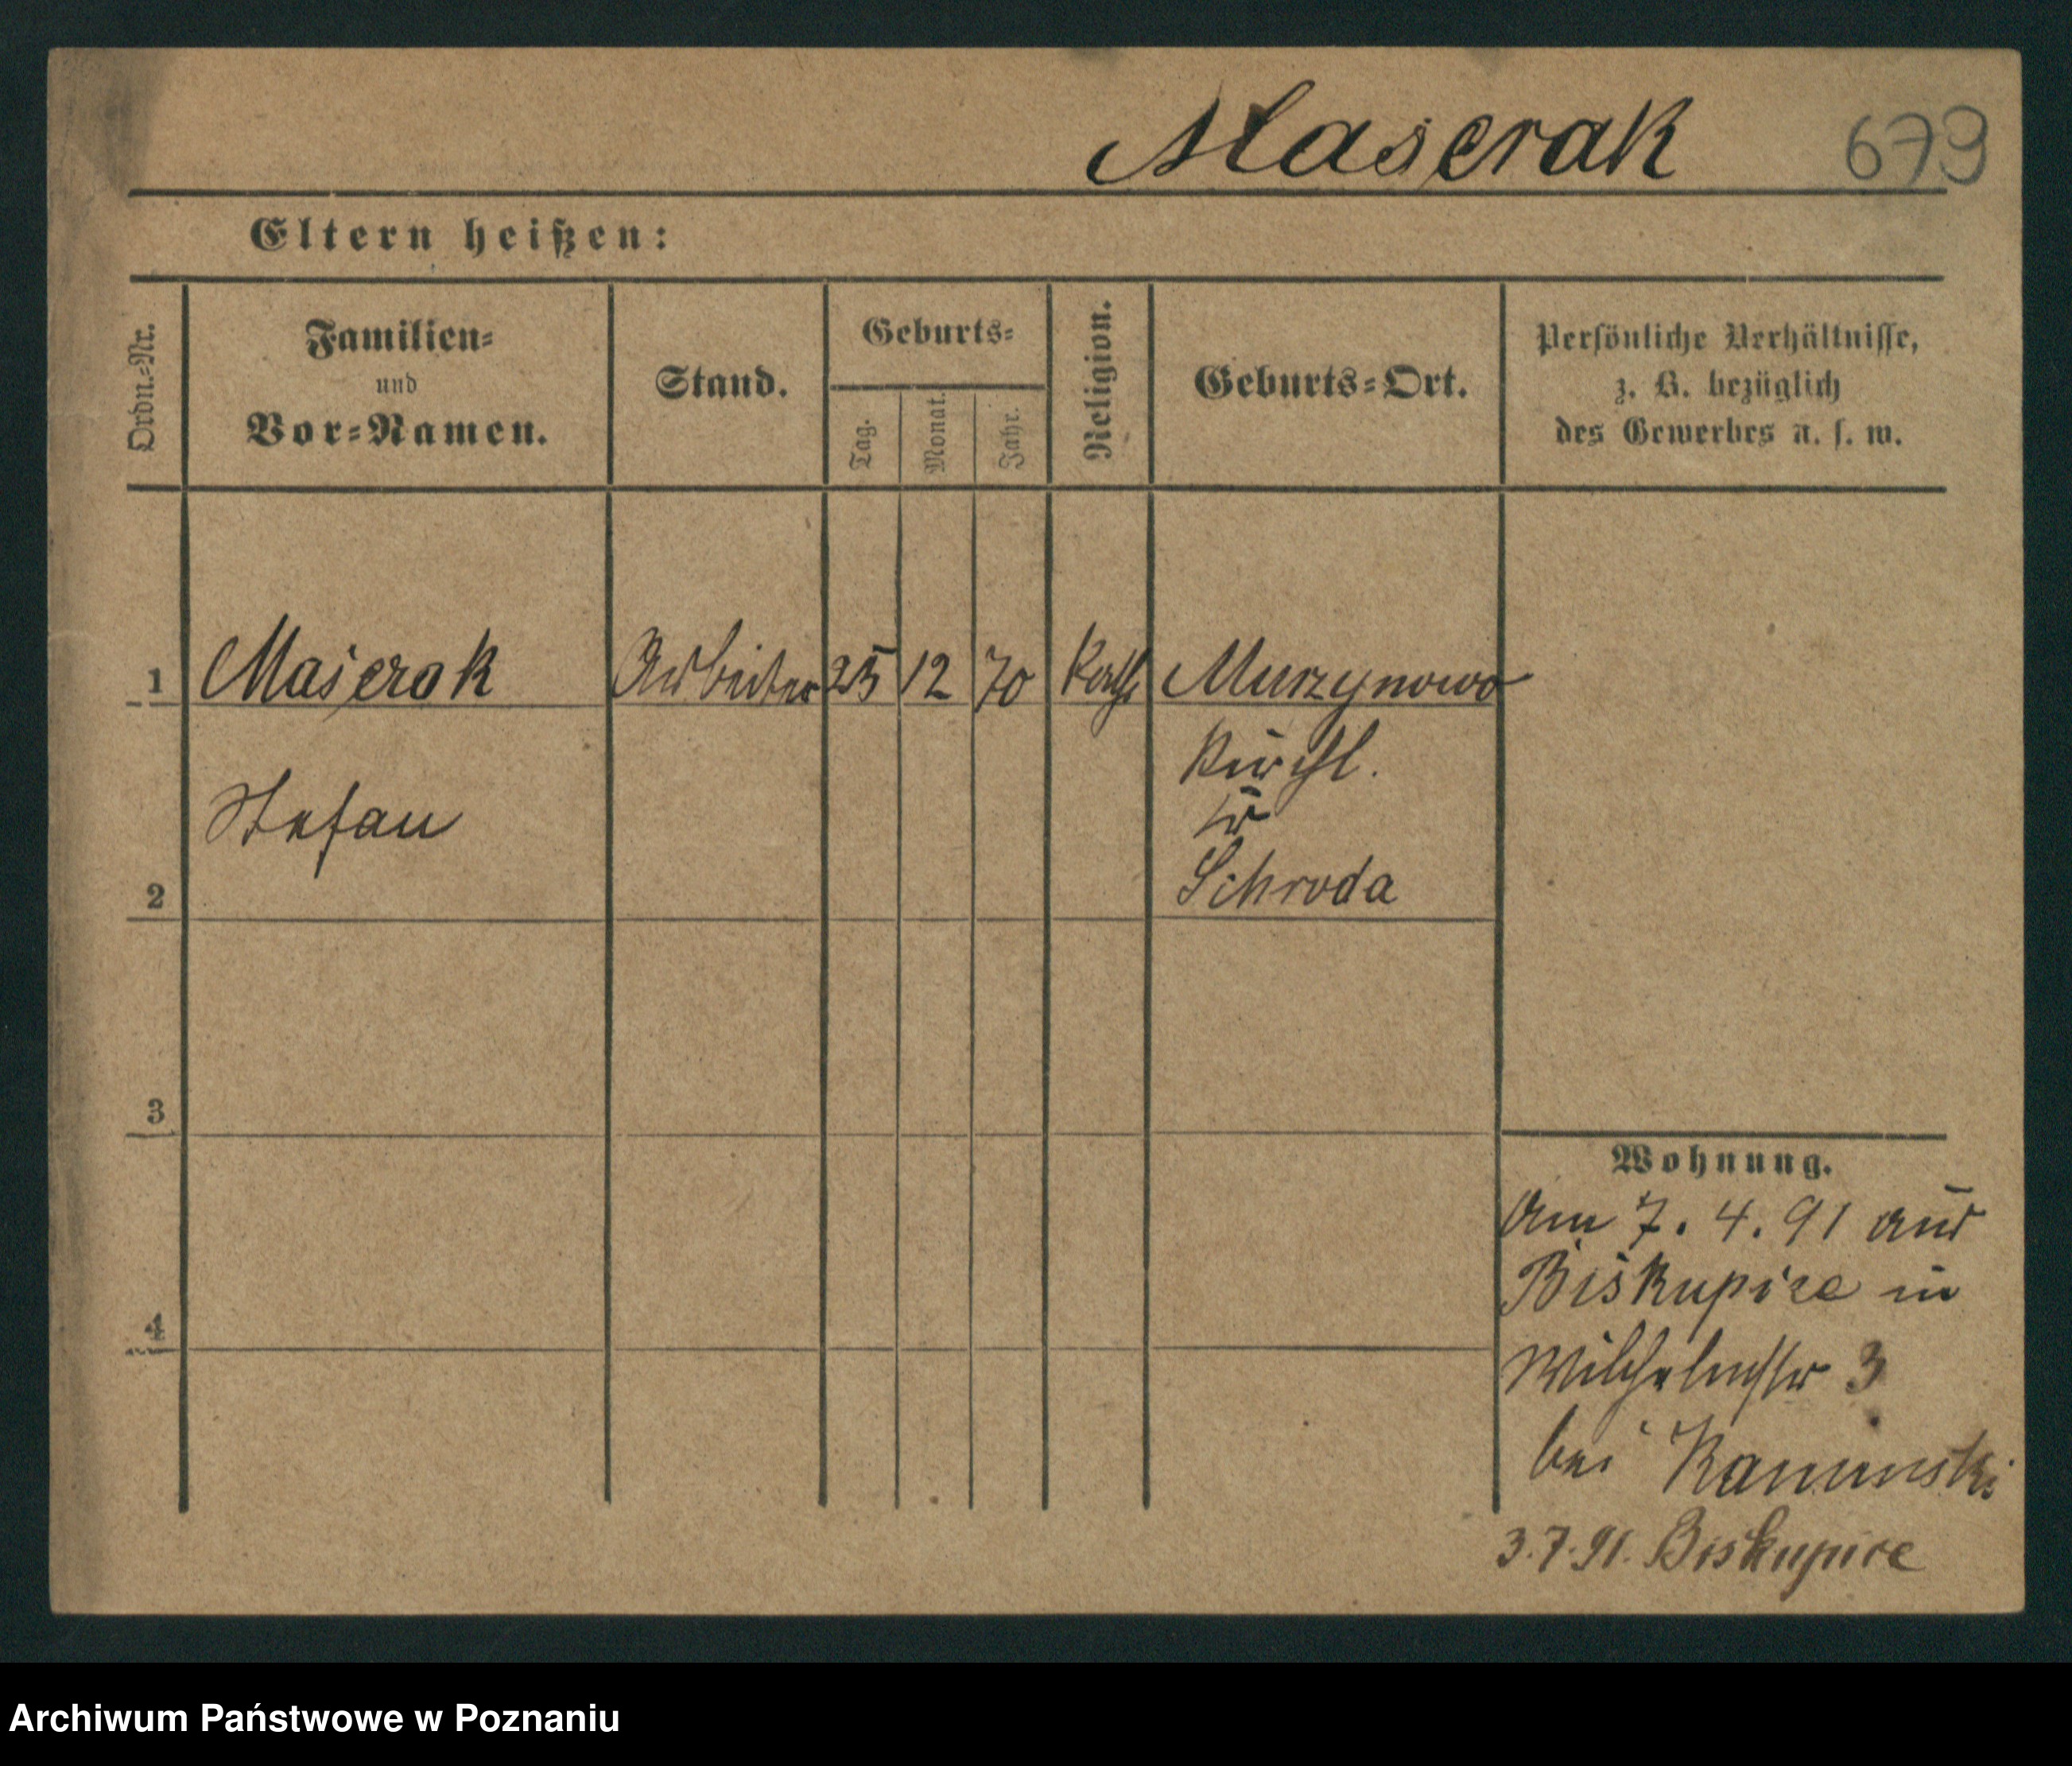 Maserak 679
Eltern heißen:
Ordn.-Nr.
Familien-
und
Vor-Namen.
Stand.
Geburts-
Tag.
Monat.
Jahr.
Religion.
Geburts-Ort.
Persönliche Verhältnisse,
z. B. bezüglich
des Gewerbes u. s. w.
1 Maserak Arbeiter 25 12 70 Kath Murzynowo
Kirchl.
Kr
Stefan
Schroda
2
3
4
Wohnung.
Am 7. 4. 91 aus
Biskupice in
Wilhelmstr 3
bei Kaminski
3.7.91. Biskupice
Archiwum Państwowe w Poznaniu